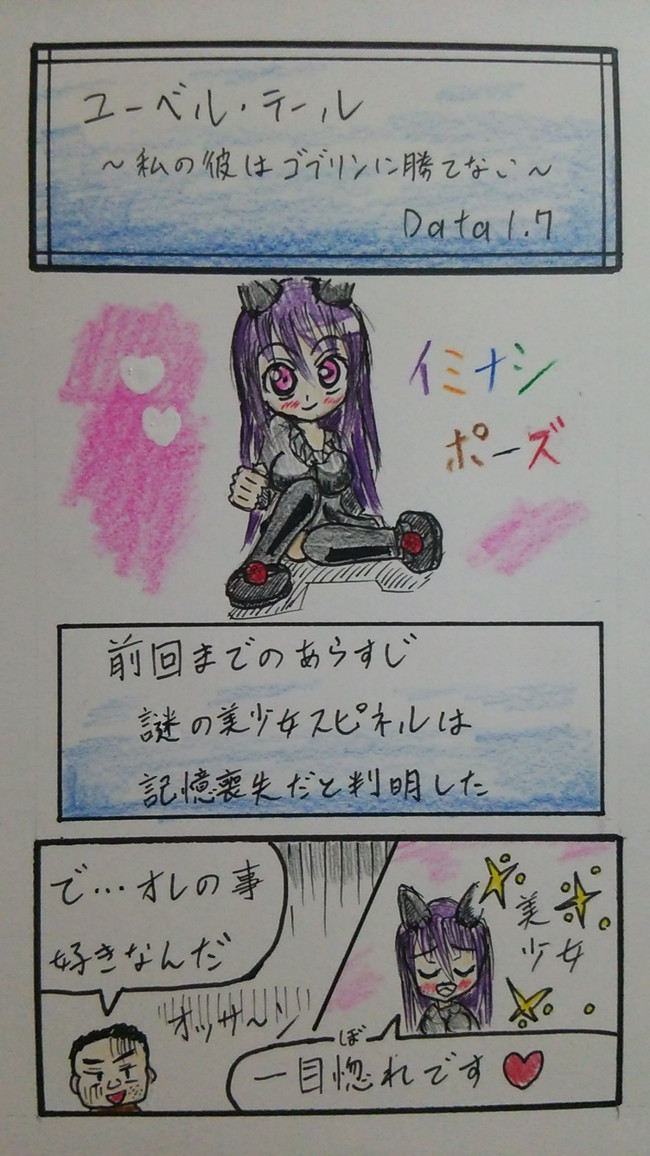 ユーベル・テール
～私の彼はゴブリンに勝てない～
Data1.7
イミナシ
ポーズ
前回までのあらすじ
謎の美少女スピネルは
記憶喪失だと判明した
で…オレの事
好きなんだ
オッサ～ン
美少女
ぼ
一目惚れです♥